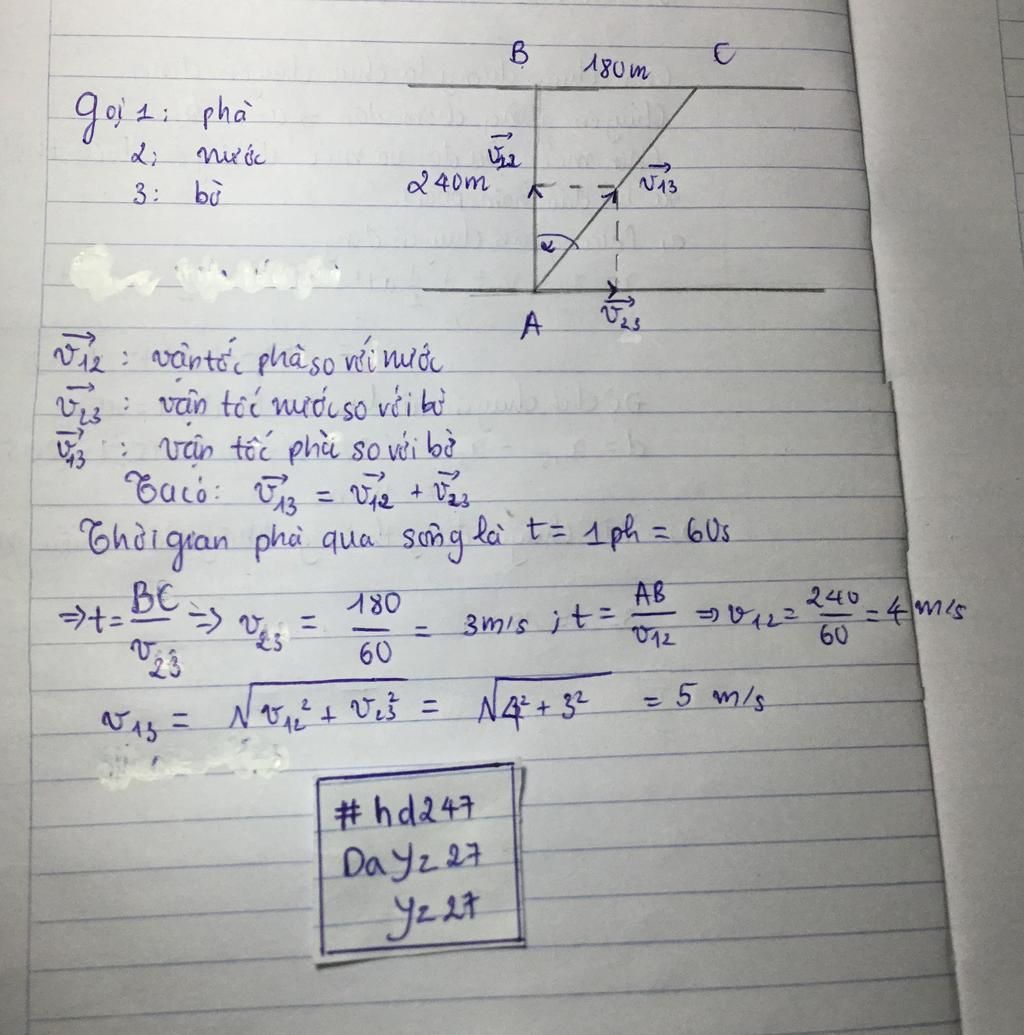 B 180m C
Gọi 1: phà
2: nước
3: bờ
240m
v₁₃
α
A
v₂₃
v₁₂ : vận tốc phà so với nước
v₂₃ : vận tốc nước so với bờ
v₁₃ : vận tốc phà so với bờ
Ta có: v₁₃ = v₁₂ + v₂₃
Thời gian phà qua sông là t = 1ph = 60s
⇒ t = BC/v₂₃ ⇒ v₂₃ = 180/60 = 3m/s ; t = AB/v₁₂ ⇒ v₁₂ = 240/60 = 4 m/s
v₁₃ = √(v₁₂² + v₂₃²) = √(4² + 3²) = 5 m/s
#hd247
DaYz27
Yz27